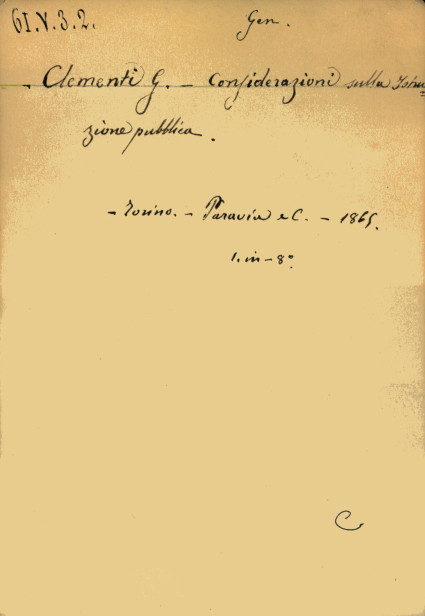 61.V.3.2.
Gen.
Clementi G. – Considerazioni sulla Istru
zione pubblica.
– Torino. – Paravia e C. – 1865.
1. in – 8°
C